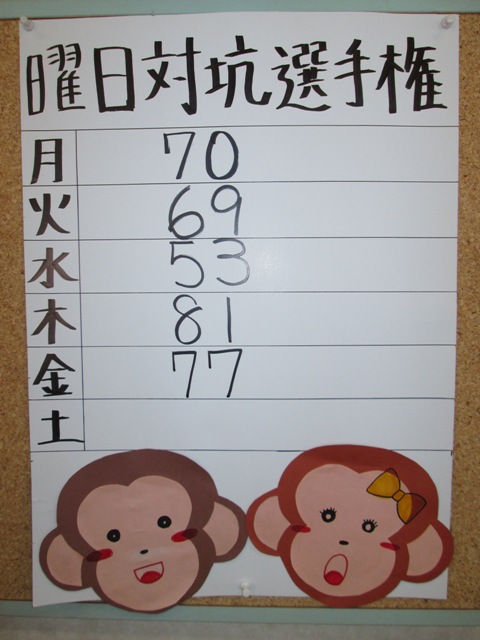 曜日対坑選手権
月 70
火 69
水 53
木 81
金 77
土